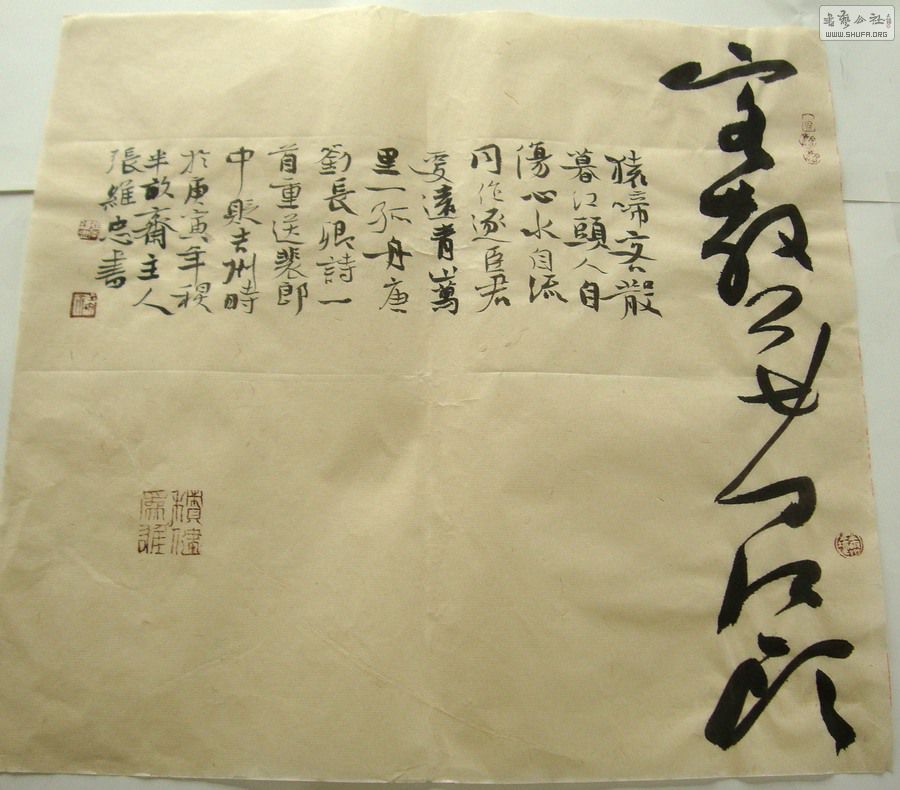 書藝公社
WWW.SHUFA.ORG
客散暮江頭
猿啼客散
暮江頭人自
傷心水自流
同作逐臣君
更遠青山萬
里一孤舟唐
劉長卿詩一
首重送裴郎
中貶吉州時
於庚寅年秋
半畝齋主人
張維忠書
積健
為雄